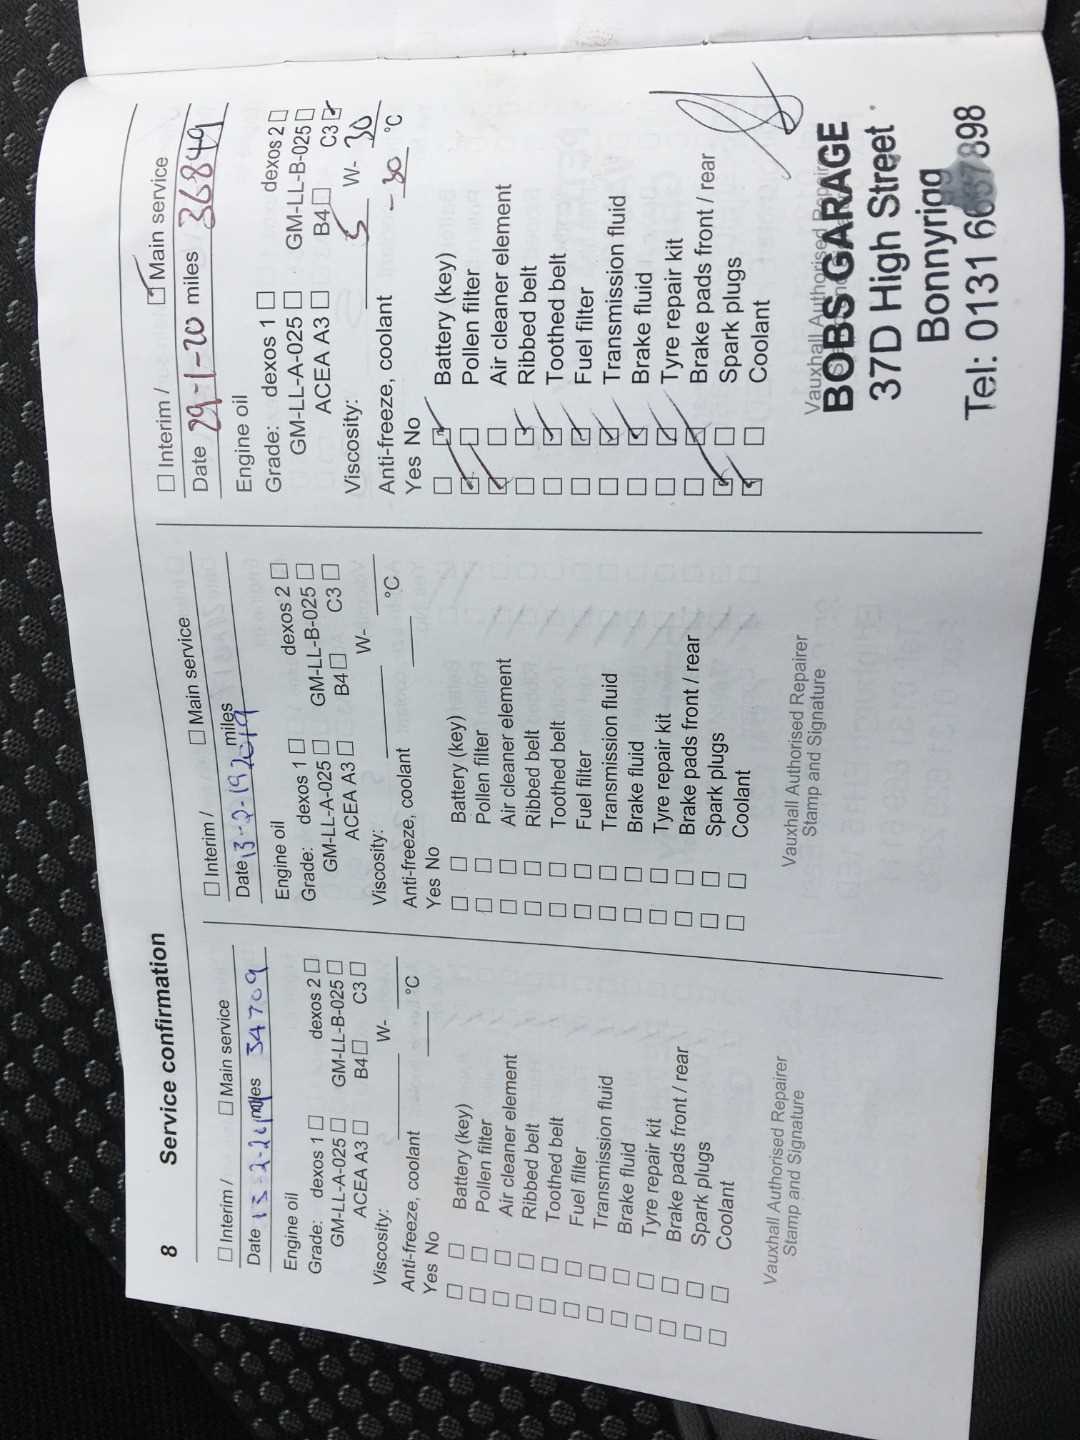 8 Service confirmation
☐ Interim / ☐ Main service
Date miles 34709
Engine oil
Grade: dexos 1 ☐ dexos 2 ☐
GM-LL-A-025 ☐ GM-LL-B-025 ☐
ACEA A3 ☐ B4 ☐ C3 ☐
Viscosity: W-
Anti-freeze, coolant °C
Yes No
☐ ☐ Battery (key)
☐ ☐ Pollen filter
☐ ☐ Air cleaner element
☐ ☐ Ribbed belt
☐ ☐ Toothed belt
☐ ☐ Fuel filter
☐ ☐ Transmission fluid
☐ ☐ Brake fluid
☐ ☐ Tyre repair kit
☐ ☐ Brake pads front / rear
☐ ☐ Spark plugs
☐ ☐ Coolant
Vauxhall Authorised Repairer
Stamp and Signature
☐ Interim / ☐ Main service
Date 13-2-192019 miles
Engine oil
Grade: dexos 1 ☐ dexos 2 ☐
GM-LL-A-025 ☐ GM-LL-B-025 ☐
ACEA A3 ☐ B4 ☐ C3 ☐
Viscosity: W-
Anti-freeze, coolant °C
Yes No
☐ ☐ Battery (key)
☐ ☐ Pollen filter
☐ ☐ Air cleaner element
☐ ☐ Ribbed belt
☐ ☐ Toothed belt
☐ ☐ Fuel filter
☐ ☐ Transmission fluid
☐ ☐ Brake fluid
☐ ☐ Tyre repair kit
☐ ☐ Brake pads front / rear
☐ ☐ Spark plugs
☐ ☐ Coolant
Vauxhall Authorised Repairer
Stamp and Signature
☐ Interim / ☑ Main service
Date 29-1-20 miles 36849
Engine oil
Grade: dexos 1 ☐ dexos 2 ☐
GM-LL-A-025 ☐ GM-LL-B-025 ☐
ACEA A3 ☐ B4 ☐ C3 ☑
Viscosity: 5 W- 30
Anti-freeze, coolant -30 °C
Yes No
☐ ☑ Battery (key)
☑ ☐ Pollen filter
☑ ☐ Air cleaner element
☐ ☑ Ribbed belt
☐ ☑ Toothed belt
☐ ☑ Fuel filter
☐ ☑ Transmission fluid
☐ ☑ Brake fluid
☐ ☑ Tyre repair kit
☐ ☑ Brake pads front / rear
☑ ☐ Spark plugs
☑ ☐ Coolant
Vauxhall Authorised Repairer
BOBS GARAGE
37D High Street
Bonnyrigg
Tel: 0131 6637898